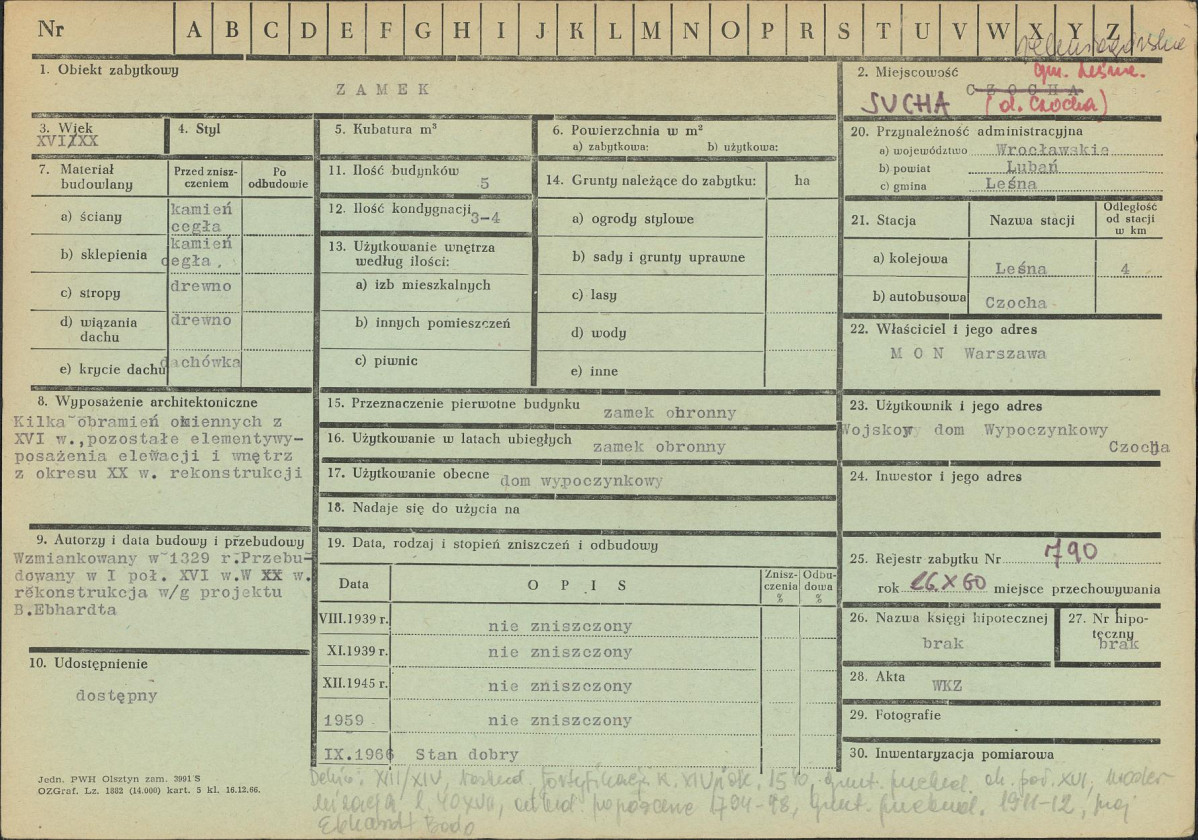 Nr A B C D E F G H I J K L M N O P R S T U V W X Y Z
1. Obiekt zabytkowy
ZAMEK
2. Miejscowość
gm. Leśna.
CZOCHA
SUCHA (d. Czocha)
3. Wiek
XVI/XX
4. Styl
5. Kubatura m³
6. Powierzchnia w m²
a) zabytkowa: b) użytkowa:
7. Materiał budowlany
Przed zniszczeniem
Po odbudowie
a) ściany kamień cegła
b) sklepienia kamień cegła.
c) stropy drewno
d) wiązania dachu drewno
e) krycie dachu dachówka
8. Wyposażenie architektoniczne
Kilka obramień okiennych z
XVI w.,pozostałe elementywy-
posażenia elewacji i wnętrz
z okresu XX w. rekonstrukcji
9. Autorzy i data budowy i przebudowy
Wzmiankowany w 1329 r.Przebu-
dowany w I poł. XVI w.W XX w.
rekonstrukcja w/g projektu
B.Ebhardta
10. Udostępnienie
dostępny
Jedn. PWH Olsztyn zam. 3991 S
OZGraf. Lz. 1882 (14.000) kart. 5 kl. 16.12.66.
11. Ilość budynków
5
12. Ilość kondygnacji 3-4
13. Użytkowanie wnętrza
według ilości:
a) izb mieszkalnych
b) innych pomieszczeń
c) piwnic
14. Grunty należące do zabytku: ha
a) ogrody stylowe
b) sady i grunty uprawne
c) lasy
d) wody
e) inne
15. Przeznaczenie pierwotne budynku zamek obronny
16. Użytkowanie w latach ubiegłych zamek obronny
17. Użytkowanie obecne dom wypoczynkowy
18. Nadaje się do użycia na
19. Data, rodzaj i stopień zniszczeń i odbudowy
Data OPIS Zniszczenia % Odbudowa %
VIII.1939 r. nie zniszczony
XI.1939 r. nie zniszczony
XII.1945 r. nie zniszczony
1959 nie zniszczony
IX.1966 Stan dobry
XIII/XIV, XVI, 1794-98, 1911-12,
Ebhardt Bodo
20. Przynależność administracyjna
a) województwo Wrocławskie
b) powiat Lubań
c) gmina Leśna
21. Stacja Nazwa stacji Odległość od stacji w km
a) kolejowa Leśna 4
b) autobusowa Czocha
22. Właściciel i jego adres
M O N Warszawa
23. Użytkownik i jego adres
Wojskowy dom Wypoczynkowy
Czocha
24. Inwestor i jego adres
25. Rejestr zabytku Nr 790
rok 26.X 60 miejsce przechowywania
26. Nazwa księgi hipotecznej
brak
27. Nr hipoteczny
brak
28. Akta
WKZ
29. Fotografie
30. Inwentaryzacja pomiarowa